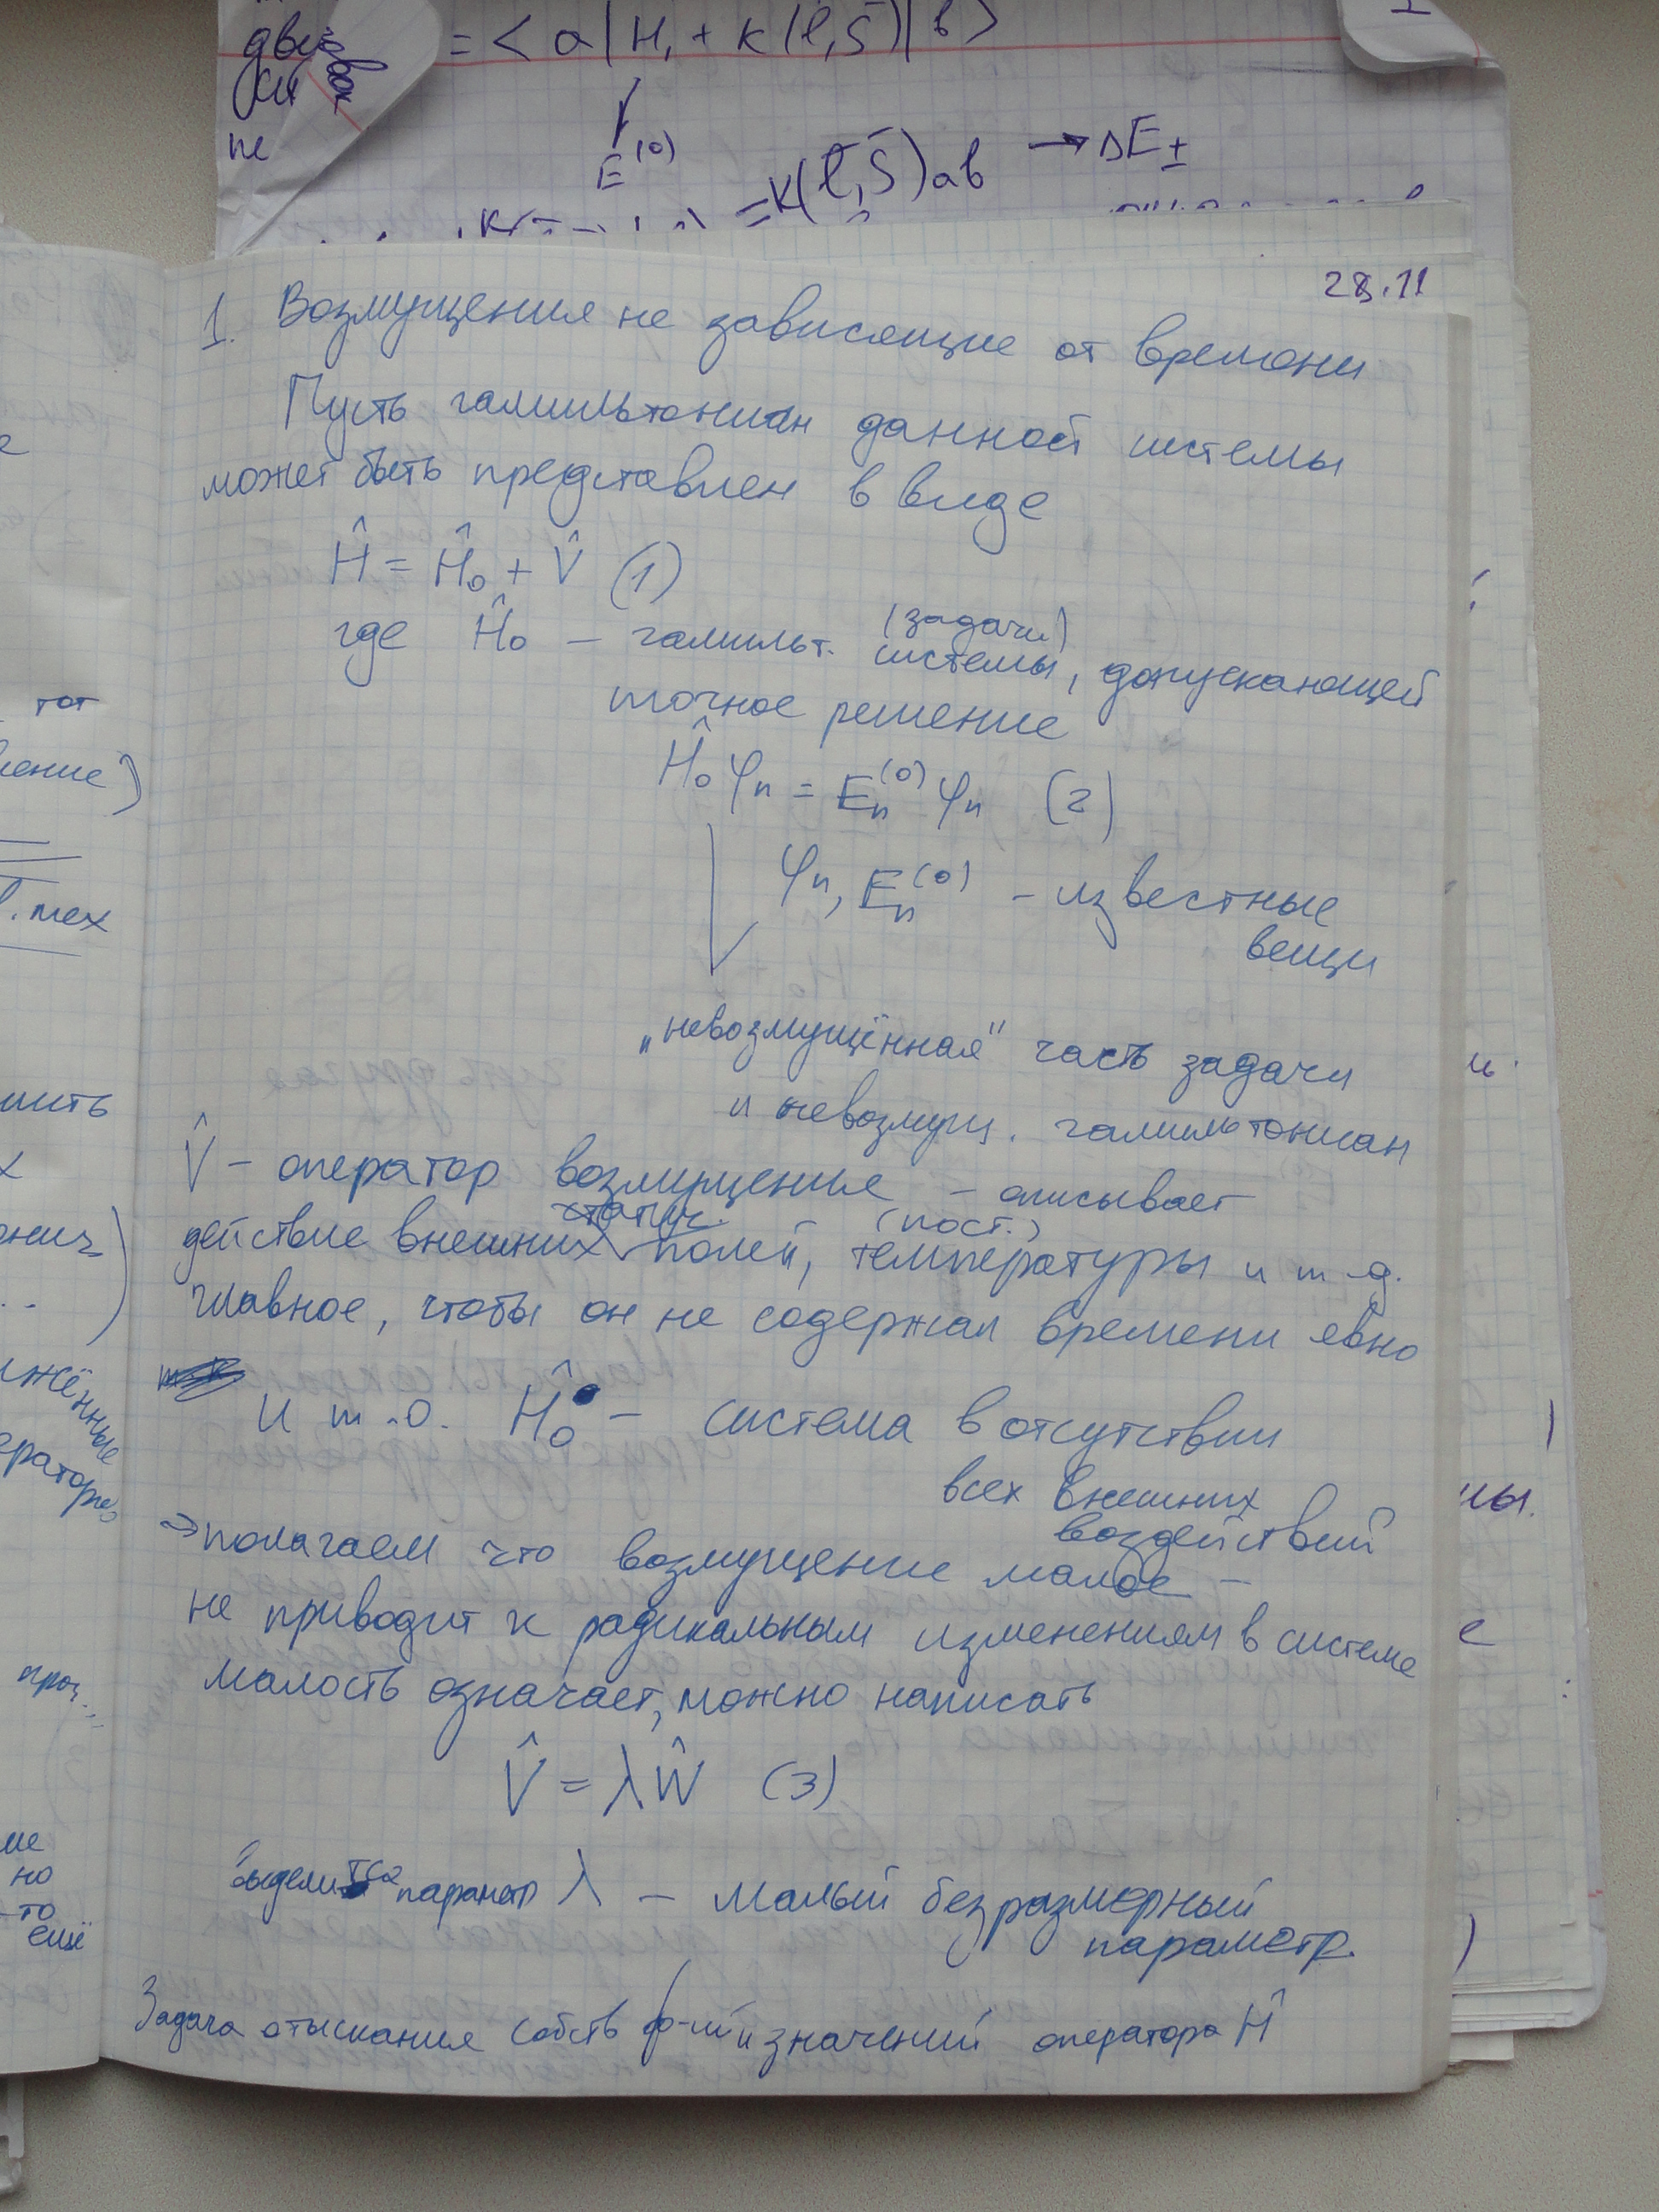 дву
си
не
= < a | H₁ + K(l, S) | b >
E⁽⁰⁾
= K(l, S) ab → ΔE±
28.11
1. Возмущения не зависящие от времени
Пусть гамильтониан данной системы
может быть представлен в виде
Ĥ = Ĥ₀ + V̂ (1)
(задачи)
где Ĥ₀ – гамильт. системы, допускающей
точное решение
Ĥ₀ φₙ = Eₙ⁽⁰⁾ φₙ (2)
φₙ, Eₙ⁽⁰⁾ – известные
вещи
„невозмущённая" часть задачи
и невозмущ. гамильтониан
V̂ – оператор возмущения – описывает
статич. (пост.)
действие внешних полей, температуры и т.д.
главное, чтобы он не содержал времени явно
И т.о. Ĥ₀ – система в отсутствии
всех внешних
воздействий
⇒ полагаем что возмущение малое –
не приводит к радикальным изменениям в системе
малость означает, можно написать
V̂ = λŴ (3)
выделится параметр λ – малый безразмерный
параметр.
Задача отыскания собств ф-ий и значений оператора Ĥ
тот
ение)
. мех
шить
онич
жённые
ераторы
ме
но
то
ещё